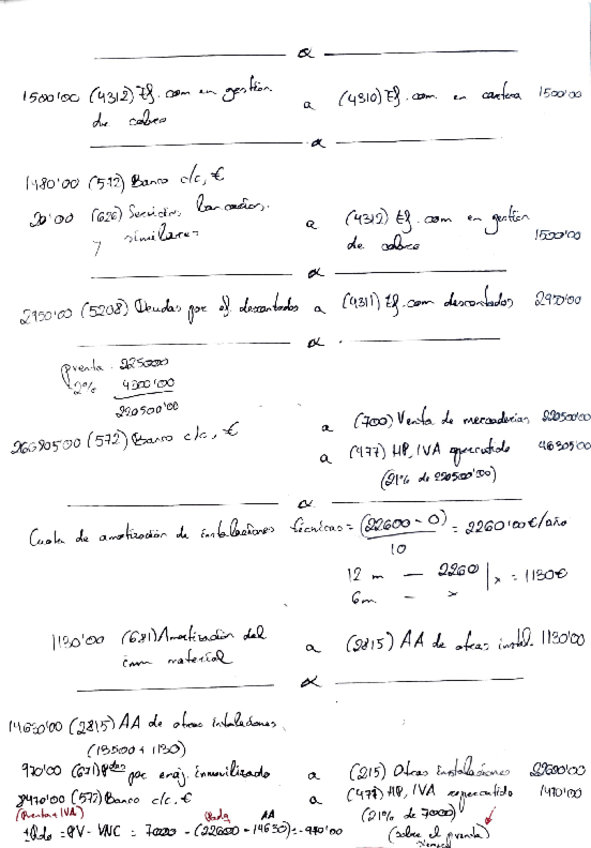 a
1500'00 (4312) Ef. com en gestión a (4310) Ef. com. en cartera 1500'00
de cobro
a
1480'00 (572) Banco c/c, €
20'00 (626) Servicios bancarios a (4312) Ef. com en gestión
y similares de cobro 1500'00
a
2950'00 (5208) Deudas por ef. descontados a (4311) Ef. com descontados 2950'00
a
pventa 225000
2% 4500'00
220500'00
266805'00 (572) Banco c/c, € a (700) Venta de mercaderías 220500'00
a (477) HP, IVA repercutido 46305'00
(21% de 220500'00)
a
Cuota de amortización de instalaciones técnicas = (22600 - 0) = 2260'00 €/año
10
12 m — 2260 | x = 1130€
6m - x
1130'00 (681) Amortización del a (2815) AA de otras instal. 1130'00
inm material
a
14630'00 (2815) AA de otras instalaciones
(13500 + 1130)
970'00 (671) Pdas proc enaj. inmovilizado a (215) Otras instalaciones 22600'00
8470'00 (572) Banco c/c. € a (477) HP, IVA repercutido 1470'00
(Pventa + IVA) (21% de 7000)
Rdo = PV - VNC = 7000 - (22600 - 14630) = -970'00 (sobre el pventa)
AA
siempre